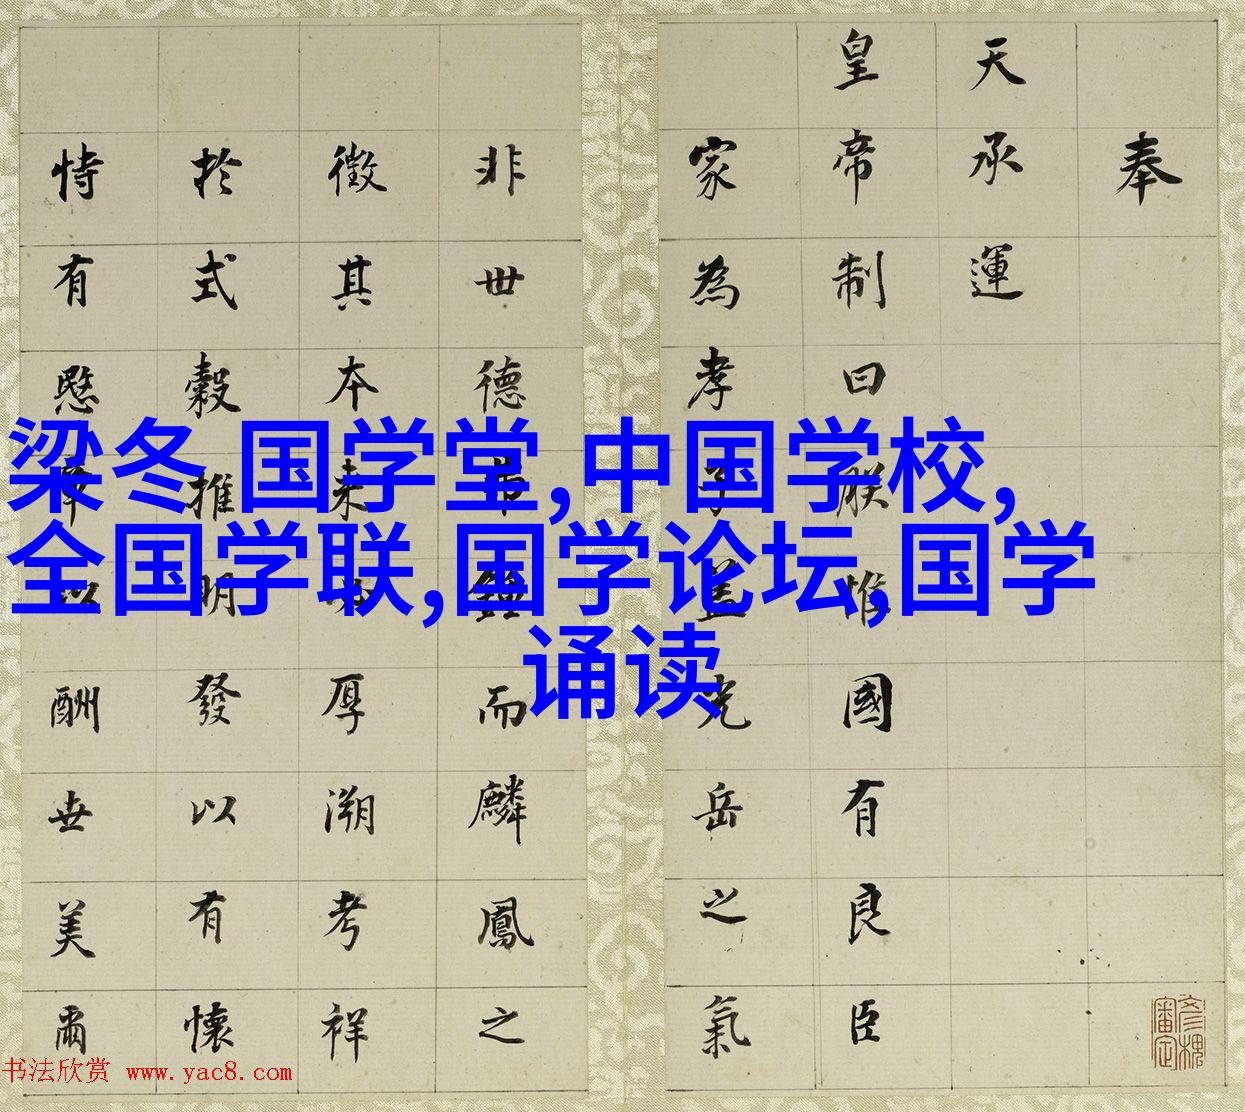 梁冬 国学堂,中国学校,
全国学联,国学论坛,国学
诵读
奉
天承運
皇帝制曰朕惟國有良臣
家為孝子蓋光岳之氣
非世德弗鍾而麟鳳之
徵其本来必厚溯考祥
於式穀推明發以有懷
恃有愍章以酬世美爾
书法欣赏 www.yac8.com